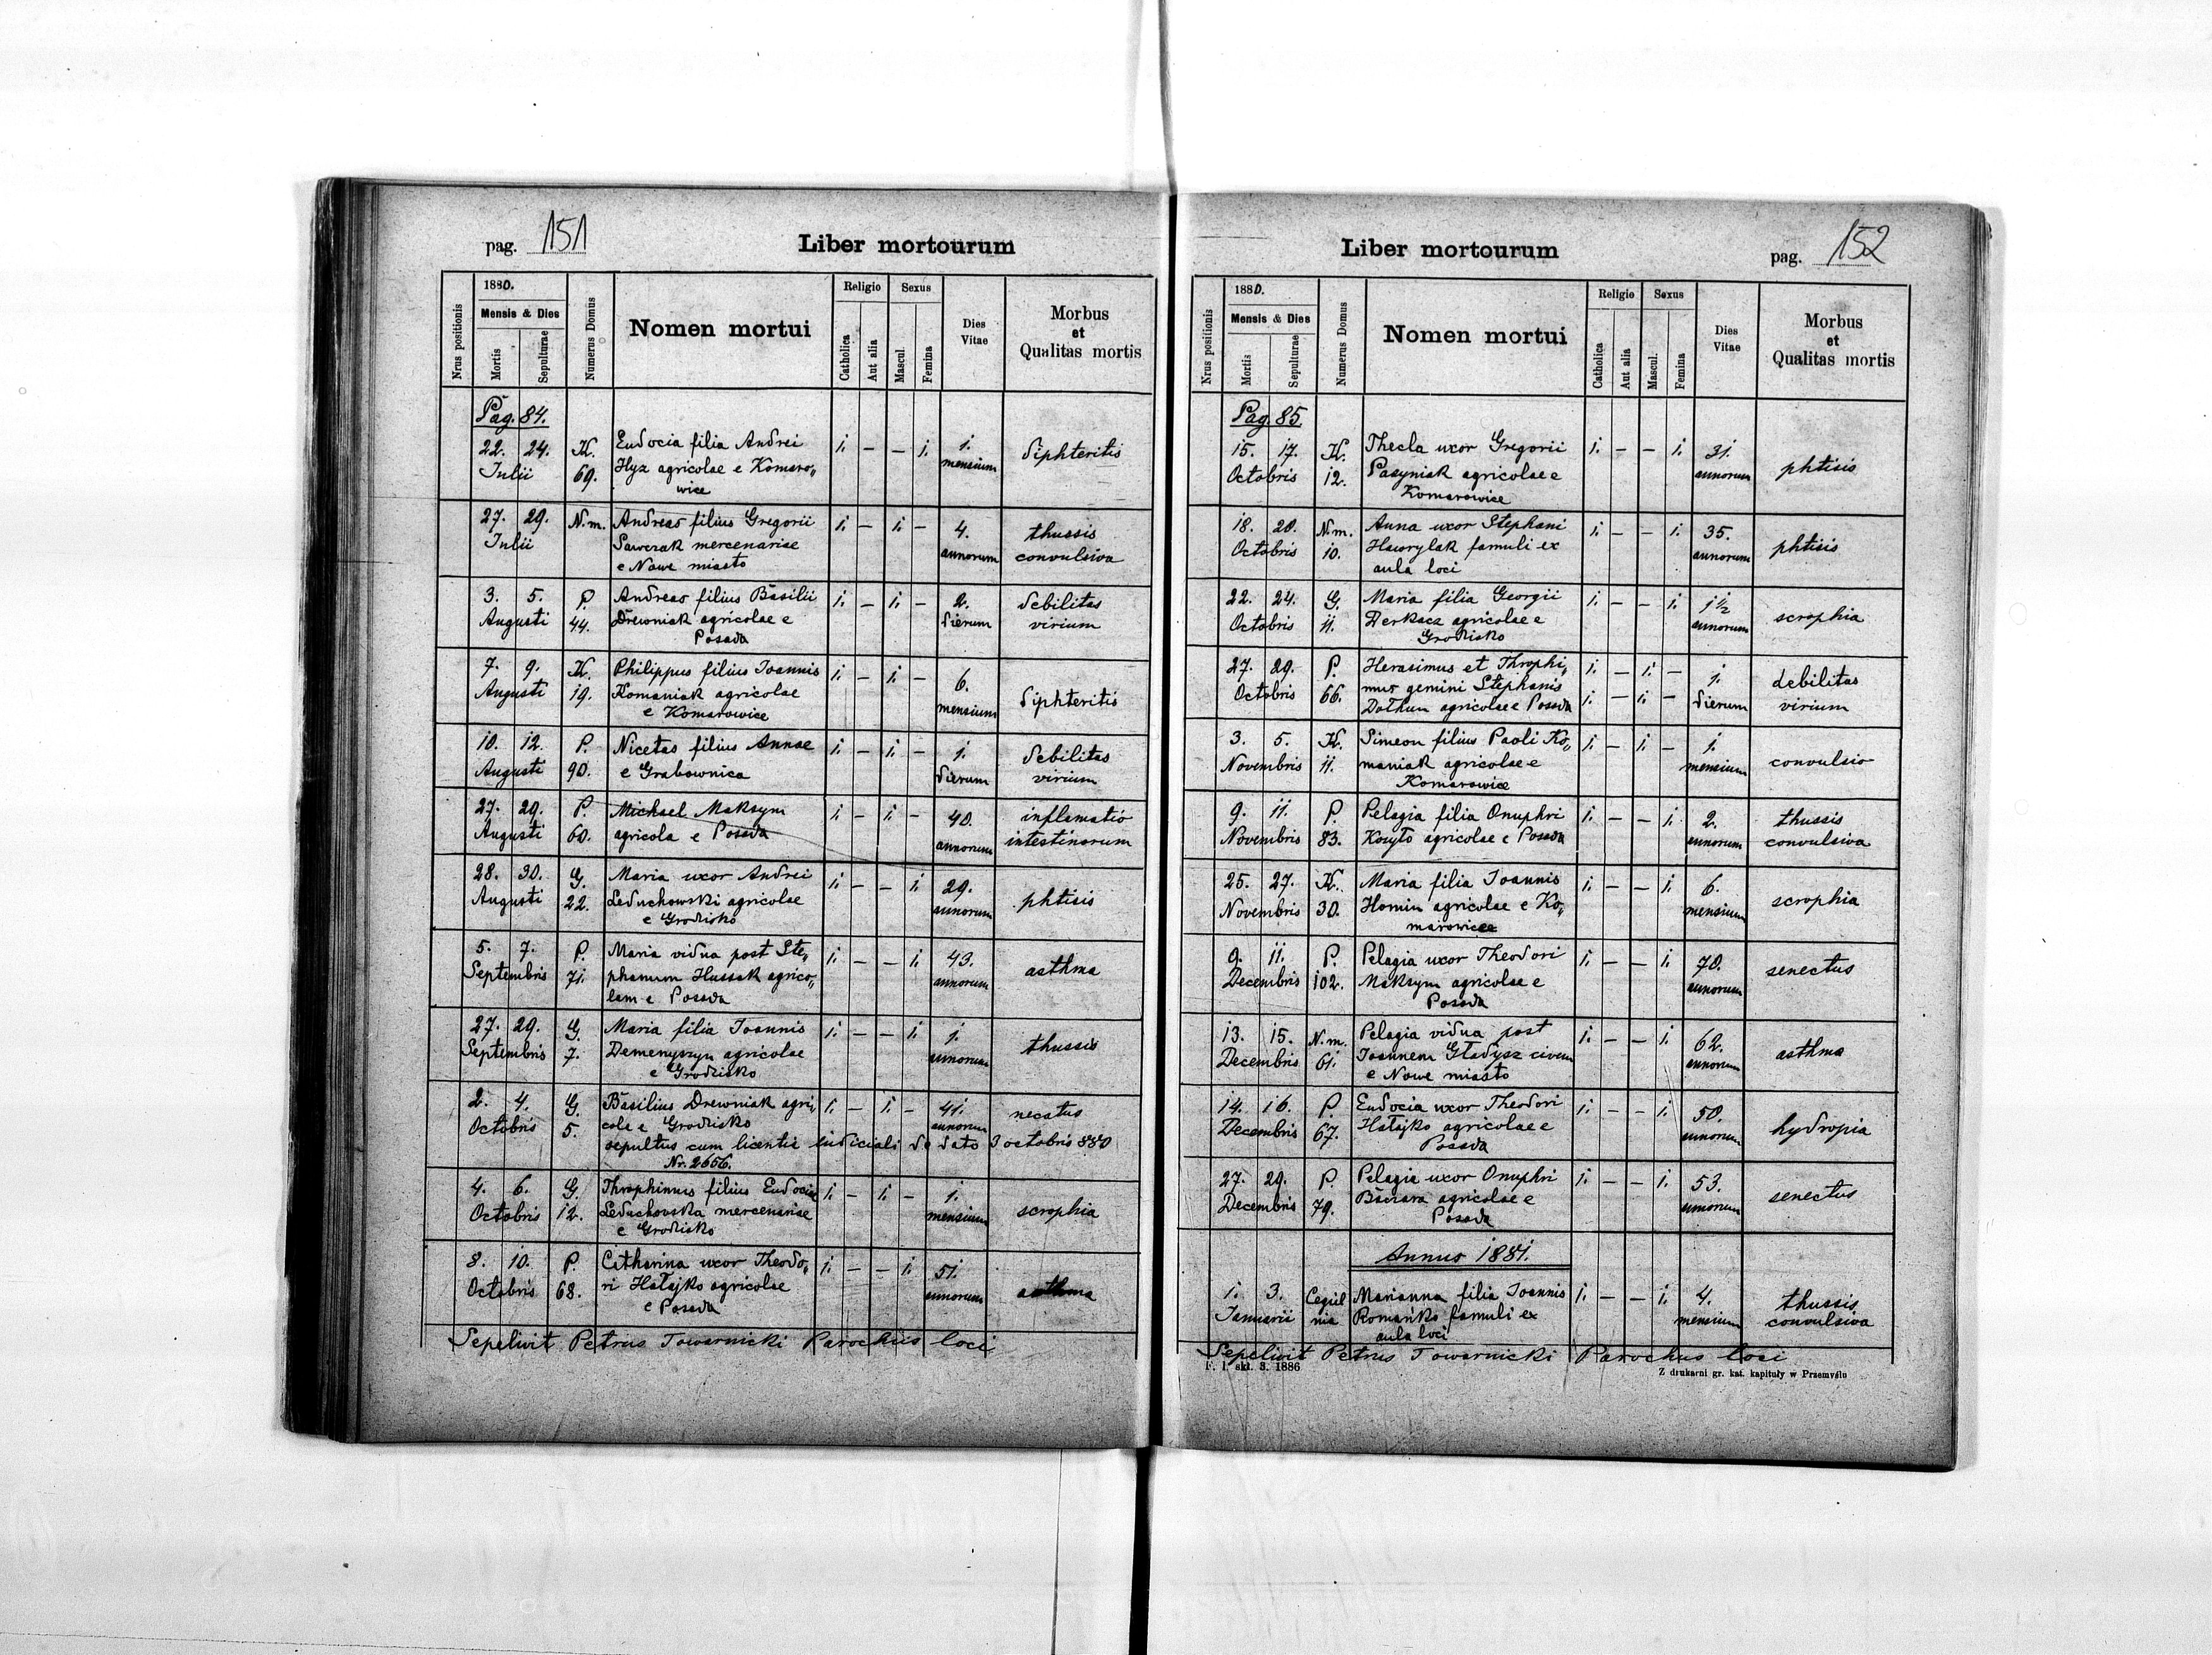 pag. 151
Liber mortourum
Nrus positionis
1880.
Mensis & Dies
Mortis
Sepulturae
Numerus Domus
Nomen mortui
Religio
Catholica
Aut alia
Sexus
Mascul.
Femina
Dies Vitae
Morbus
et
Qualitas mortis
Pag. 84.
22. 24. K. Eudocia filia Andrei 1. – – 1. 1. diphteritis
Julii 69. Hyz agricolae e Komaro„ mensium
wice
27. 29. N.m. Andreas filius Gregorii 1. – 1. – 4. thussis
Julii Sawczak mercenariae annorum convulsiva
e Nowe miasto
3. 5. P. Andreas filius Basilii 1. – 1. – 2. debilitas
Augusti 44. Drewniak agricolae e dierum virium
Posada
7. 9. K. Philippus filius Joannis 1. – 1. – 6. diphteritis
Augusti 19. Komaniak agricolae mensium
e Komarowice
10. 12. P. Nicetas filius Annae 1. – 1. – 1. debilitas
Augusti 90. e Grabownica dierum virium
27. 29. P. Michael Maksym 1. – 1. – 40. inflamatio
Augusti 60. agricola e Posada annorum intestinorum
28. 30. G. Maria uxor Andrei 1. – – 1. 29. phtisis
Augusti 22. Leduchowski agricolae annorum
e Grodzisko
5. 7. P. Maria vidua post Ste„ 1. – – 1. 43. asthma
Septembris 71. phanum Hussak agrico„ annorum
lam e Posada
27. 29. G. Maria filia Joannis 1. – – 1. 1. thussis
Septembris 7. Demenyszyn agricolae annorum
e Grodzisko
2. 4. G. Basilius Drewniak agri„ 1. – 1. – 41. necatus
Octobris 5. cola e Grodzisko annorum
sepultus cum licentie iudiciali de dato 3 octobris 880
Nr. 2656.
4. 6. G. Throphimus filius Eudocia 1. – 1. – 1. scrophia
Octobris 12. Leduchovska mercenariae mensium
e Grodzisko
8. 10. P. Catharina uxor Theodo„ 1. – – 1. 51. asthma
Octobris 68. ri Hałajko agricolae annorum
e Posada
Sepelivit Petrus Towarnicki Parochus loci
Liber mortourum
pag. 152
Nrus positionis
1880.
Mensis & Dies
Mortis
Sepulturae
Numerus Domus
Nomen mortui
Religio
Catholica
Aut alia
Sexus
Mascul.
Femina
Dies Vitae
Morbus
et
Qualitas mortis
Pag. 85.
15. 17. K. Thecla uxor Gregorii 1. – – 1. 31. phtisis
Octobris 12. Pasyniak agricolae e annorum
Komarowice
18. 20. N.m. Anna uxor Stephani 1. – – 1. 35. phtisis
Octobris 10. Hawrylak famuli ex annorum
aula loci
22. 24. G. Maria filia Georgii 1. – – 1. 1½ scrophia
Octobris 11. Derkacz agricolae e annorum
Grodzisko
27. 29. P. Herasimus et Throphi„ 1. – 1. – 1. debilitas
Octobris 66. mus gemini Stephanis 1. – 1. – dierum virium
Dołhun agricolae e Posada
3. 5. K. Simeon filius Paoli Ko„ 1. – 1. – 1. convulsio
Novembris 11. maniak agricolae e mensium
Komarowice
9. 11. P. Pelagia filia Onuphri 1. – – 1. 2. thussis
Novembris 83. Kozyło agricolae e Posada annorum convulsiva
25. 27. K. Maria filia Joannis 1. – – 1. 6. scrophia
Novembris 30. Homin agricolae e Ko„ mensium
marowice
9. 11. P. Pelagia uxor Theodori 1. – – 1. 70. senectus
Decembris 102. Maksym agricolae e annorum
Posada
13. 15. N.m. Pelagia vidua post 1. – – 1. 62. asthma
Decembris 61. Joannem Gładysz civem annorum
e Nowe miasto
14. 16. P. Eudocia uxor Theodori 1. – – 1. 50. hydropia
Decembris 67. Hałajko agricolae e annorum
Posada
27. 29. P. Pelagia uxor Onuphri 1. – – 1. 53. senectus
Decembris 79. agricolae e annorum
Posada
Annus 1881.
1. 3. Cegiel Marianna filia Joannis 1. – – 1. 4. thussis
Januarii nia Romańko famuli ex mensium convulsiva
aula loci
Sepelivit Petrus Towarnicki Parochus loci
F. l. skł. 3. 1886
Z drukarni gr. kat. kapituły w Przemyślu